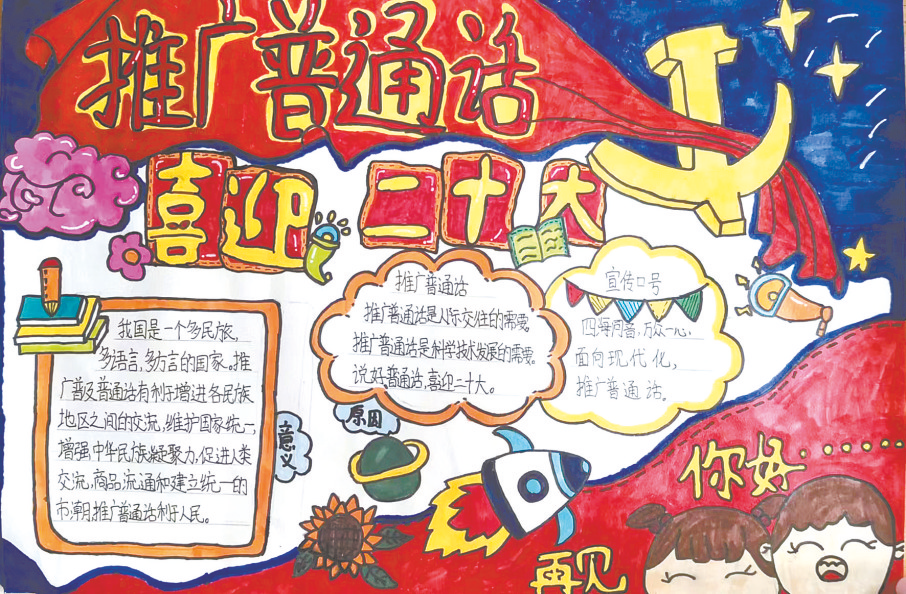 推广普通话
喜迎二十大
推广普通话
推广普通话是人际交往的需要
推广普通话是科学技术发展的需要。
说好普通话,喜迎二十大。
宣传口号
四海同音,万众一心,
面向现代化,
推广普通话。
我国是一个多民族,
多语言,多方言的国家。推
广普及普通话有利于增进各民族
地区之间的交流,维护国家统一,
增强中华民族凝聚力,促进人类
交流,商品流通和建立统一的
市场,推广普通话利于人民。
意义
原因
你好......
再见